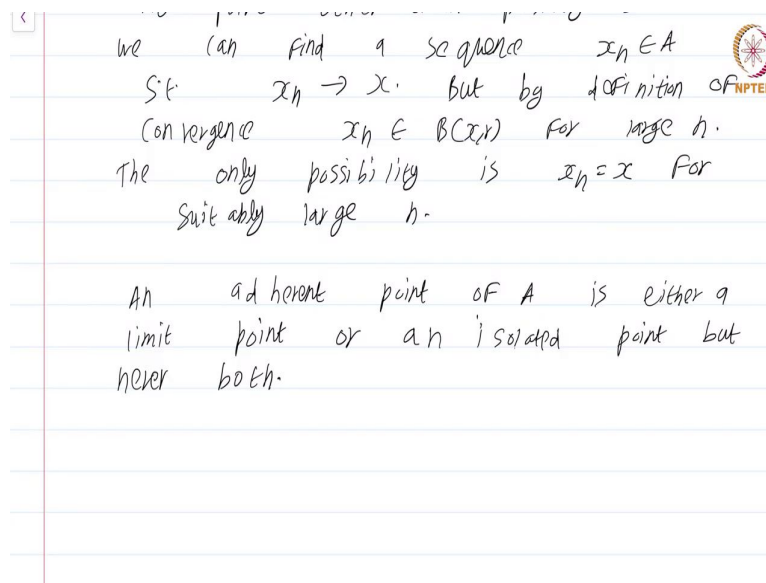 we can find a sequence xₙ ∈ A
s.t. xₙ → x. But by definition of
NPTEL
convergence xₙ ∈ B(x,r) for large n.
The only possibility is xₙ = x for
suitably large n.
An adherent point of A is either a
limit point or an isolated point but
never both.